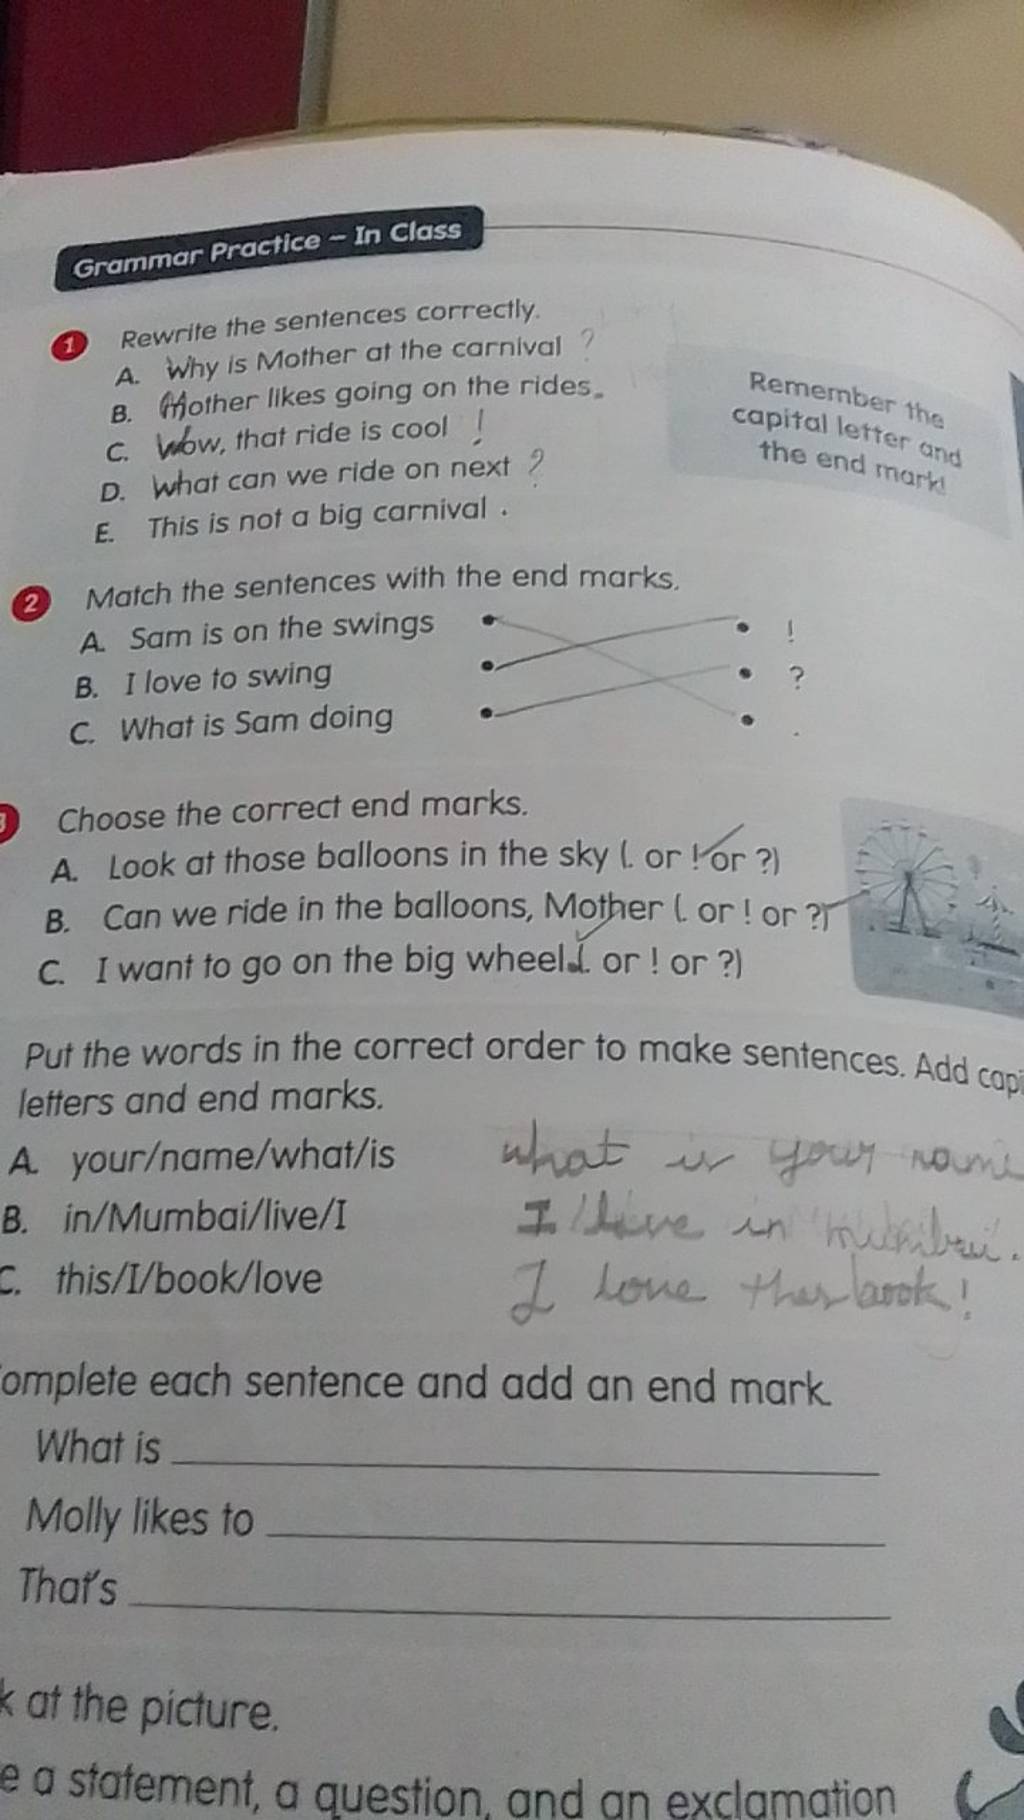 Grammar Practice – In Class
1 Rewrite the sentences correctly.
A. Why is Mother at the carnival ?
B. Mother likes going on the rides.
C. Wow, that ride is cool !
D. What can we ride on next ?
E. This is not a big carnival .
Remember the
capital letter and
the end mark!
2 Match the sentences with the end marks.
A. Sam is on the swings
B. I love to swing
C. What is Sam doing
!
?
.
3 Choose the correct end marks.
A. Look at those balloons in the sky (. or ! or ?)
B. Can we ride in the balloons, Mother (. or ! or ?)
C. I want to go on the big wheel (. or ! or ?)
Put the words in the correct order to make sentences. Add capi
letters and end marks.
A. your/name/what/is what is your name
B. in/Mumbai/live/I I live in mumbai.
C. this/I/book/love I love this book!
omplete each sentence and add an end mark.
What is
Molly likes to
That's
k at the picture.
e a statement, a question, and an exclamation